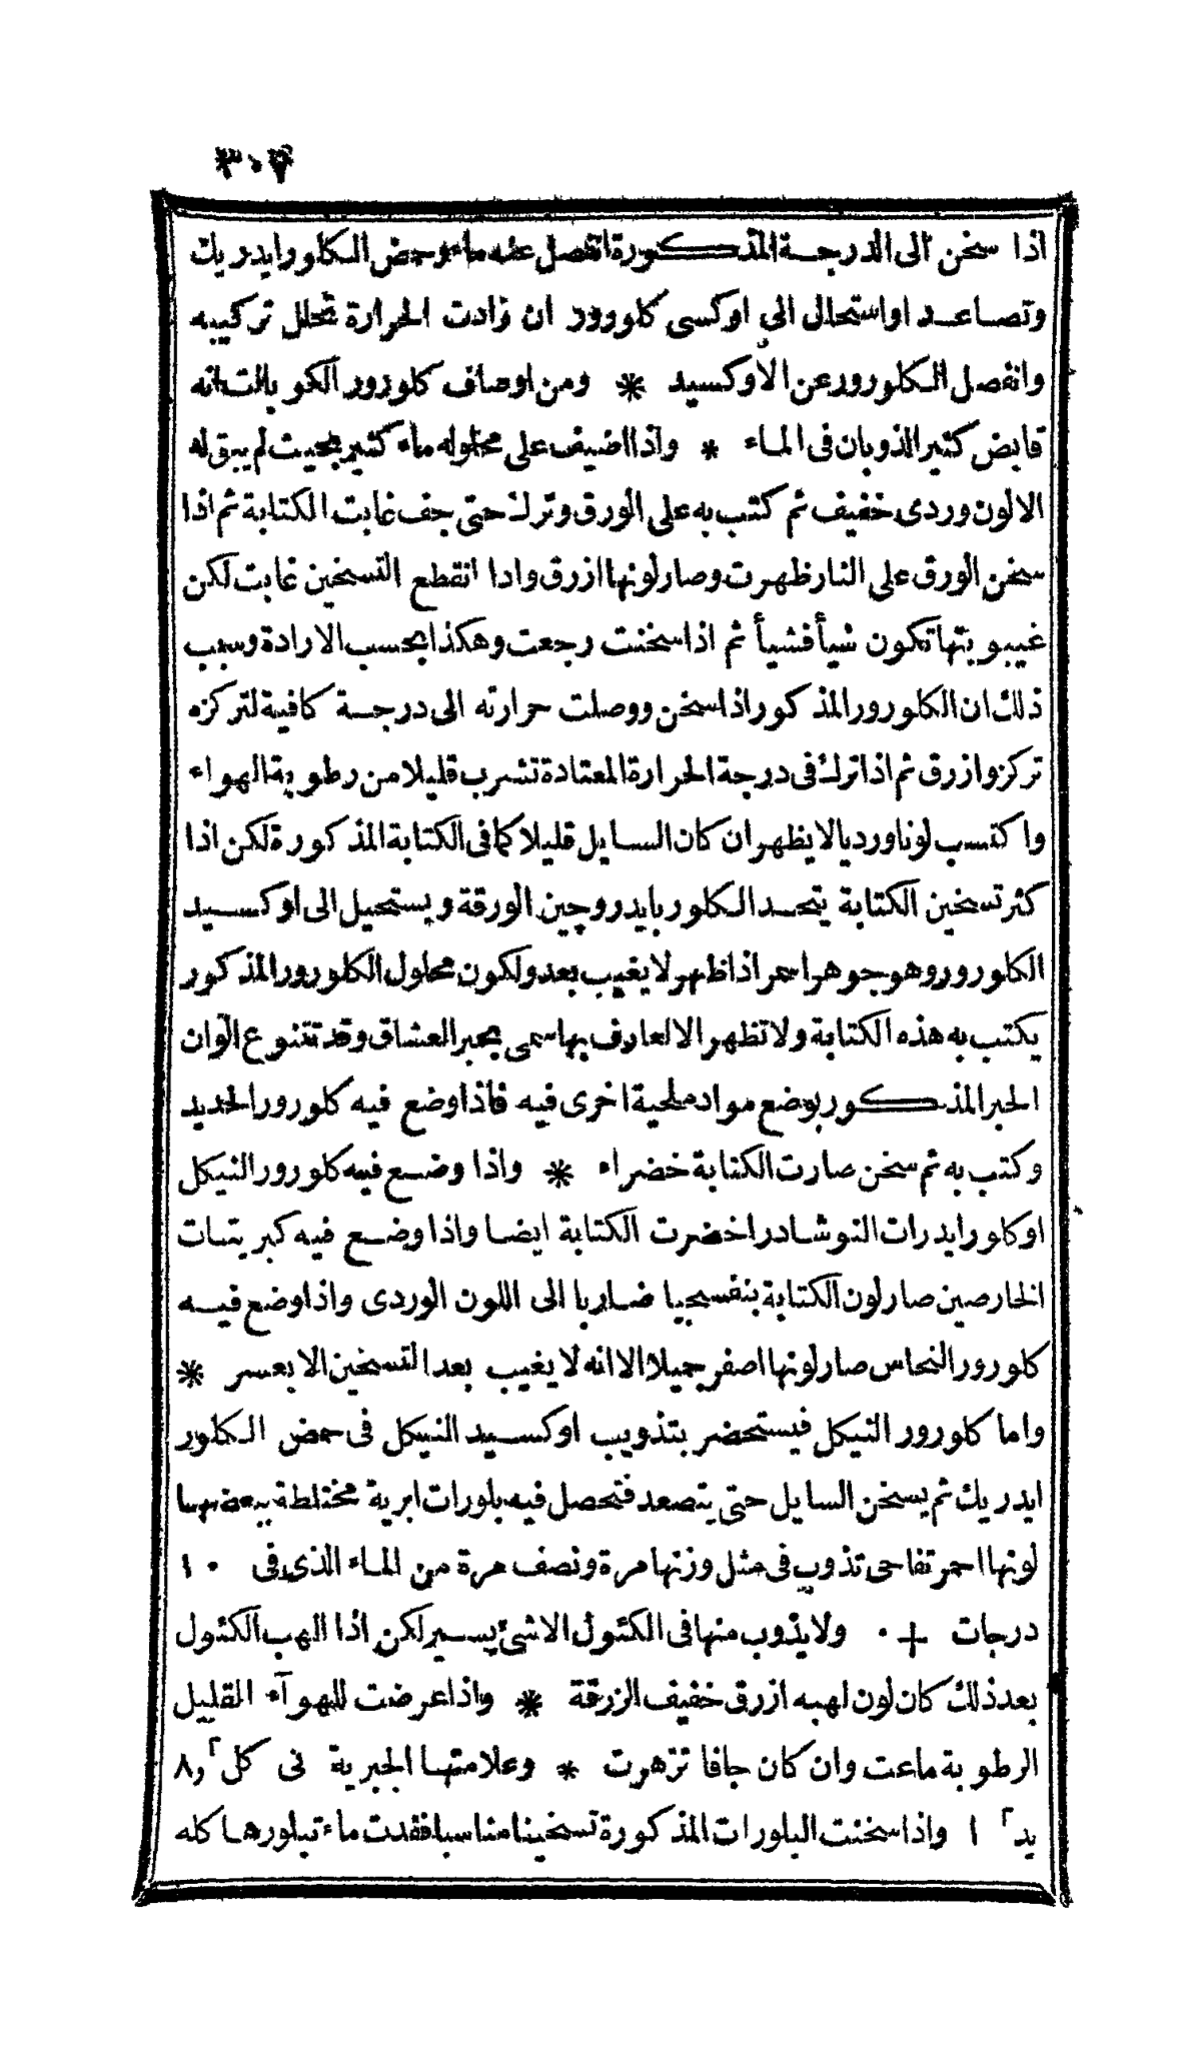 اذا سخن الى الدرجة المذكورة انفصل عنه ماء وحمض الكلور ايدريك
وتصاعد او استحال الى اوكسى كلورور ان زادت الحرارة تحلل تركيبه
وانفصل الكلورور عن الاوكسيد * ومن اوصاف كلورور الكوبالت انه
قابض كثير الذوبان فى الماء * واذا اضيف على محلوله ماء كثير بحيث لم يبق له
الا لون وردى خفيف ثم كتب به على الورق وترك حتى جف غابت الكتابة ثم اذا
سخن الورق على النار ظهرت وصار لونها ازرق واذا انقطع التسخين غابت لكن
غيبوبتها تكون شيأ فشيأ ثم اذا سخنت رجعت وهكذا بحسب الارادة وسبب
ذلك ان الكلورور المذكور اذا سخن ووصلت حرارته الى درجة كافية لتركزه
تركز وازرق ثم اذا ترك فى درجة الحرارة المعتادة تشرب قليلا من رطوبة الهواء
واكتسب لونا ورديا لا يظهر ان كان السايل قليلا كما فى الكتابة المذكورة لكن اذا
كثر تسخين الكتابة يتحد الكلور بايدروچين الورقة ويستحيل الى اوكسيد
الكلورور وهو جوهر اسمر اذا ظهر لا يغيب بعد ولكون محلول الكلورور المذكور
يكتب به هذه الكتابة ولا تظهر الا لعارف بها سمى بحبر العشاق وقد تتنوع الوان
الحبر المذكور بوضع مواد ملحية اخرى فيه فاذا وضع فيه كلورور الحديد
وكتب به ثم سخن صارت الكتابة خضراء * واذا وضع فيه كلورور النيكل
او كلور ايدرات النوشادر اخضرت الكتابة ايضا واذا وضع فيه كبريتات
الخارصين صار لون الكتابة بنفسجيا ضاربا الى اللون الوردى واذا وضع فيه
كلورور النحاس صار لونها اصفر جميلا الا انه لا يغيب بعد التسخين الا بعسر *
واما كلورور النيكل فيستحضر بتذويب اوكسيد النيكل فى حمض الكلور
ايدريك ثم يسخن السايل حتى يتصعد فتحصل فيه بلورات ابرية مختلطة ببعضها
لونها احمر تفاحى تذوب فى مثل وزنها مرة ونصف مرة من الماء الذى فى ١٠
درجات + ٠ ولا يذوب منها فى الكئول الا شئ يسير لكن اذا الهب الكئول
بعد ذلك كان لون لهبه ازرق خفيف الزرقة * واذا عرضت للهوآء القليل
الرطوبة ماعت وان كان جافا تزهرت * وعلامتها الجبرية نى كل٢ و٨
يد٢ ١ واذا سخنت البلورات المذكورة تسخينا مناسبا فقدت ماء تبلورها كله